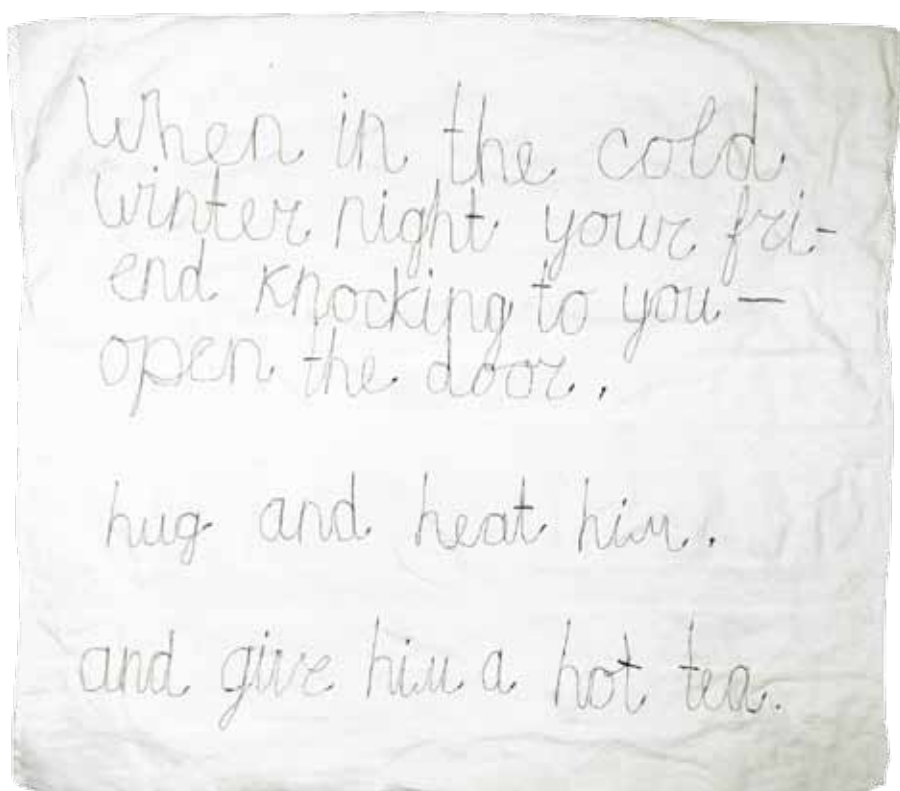 When in the cold
winter night your fri-
end knocking to you —
open the door.
hug and heat him.
and give him a hot tea.